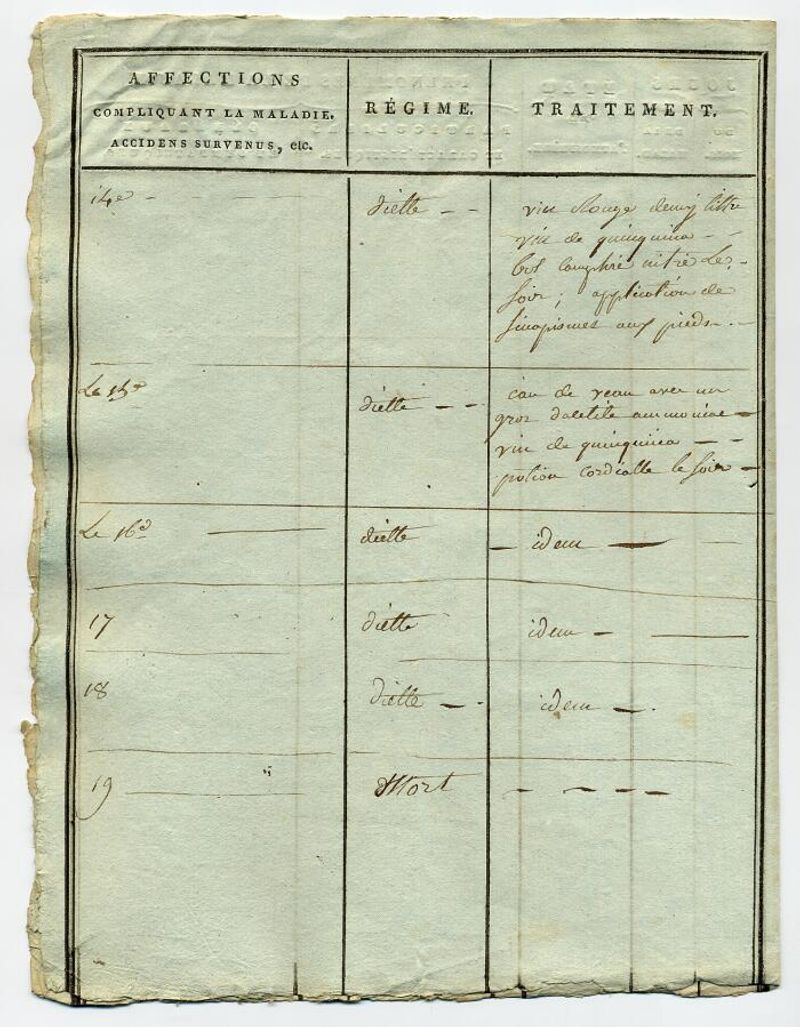 AFFECTIONS
COMPLIQUANT LA MALADIE.
ACCIDENS SURVENUS, etc.
RÉGIME.
TRAITEMENT.
14e
diette
vin Rouge demy littre
vin de quinquina
bol camphré nitré Le
soir; application de
sinapismes aux pieds.
Le 15e
diette
eau de veau avec un
gros d'acétite ammoniac
vin de quinquina
potion cordialle le soir
Le 16e
diette
idem
17
diette
idem
18
diette
idem
19
Mort